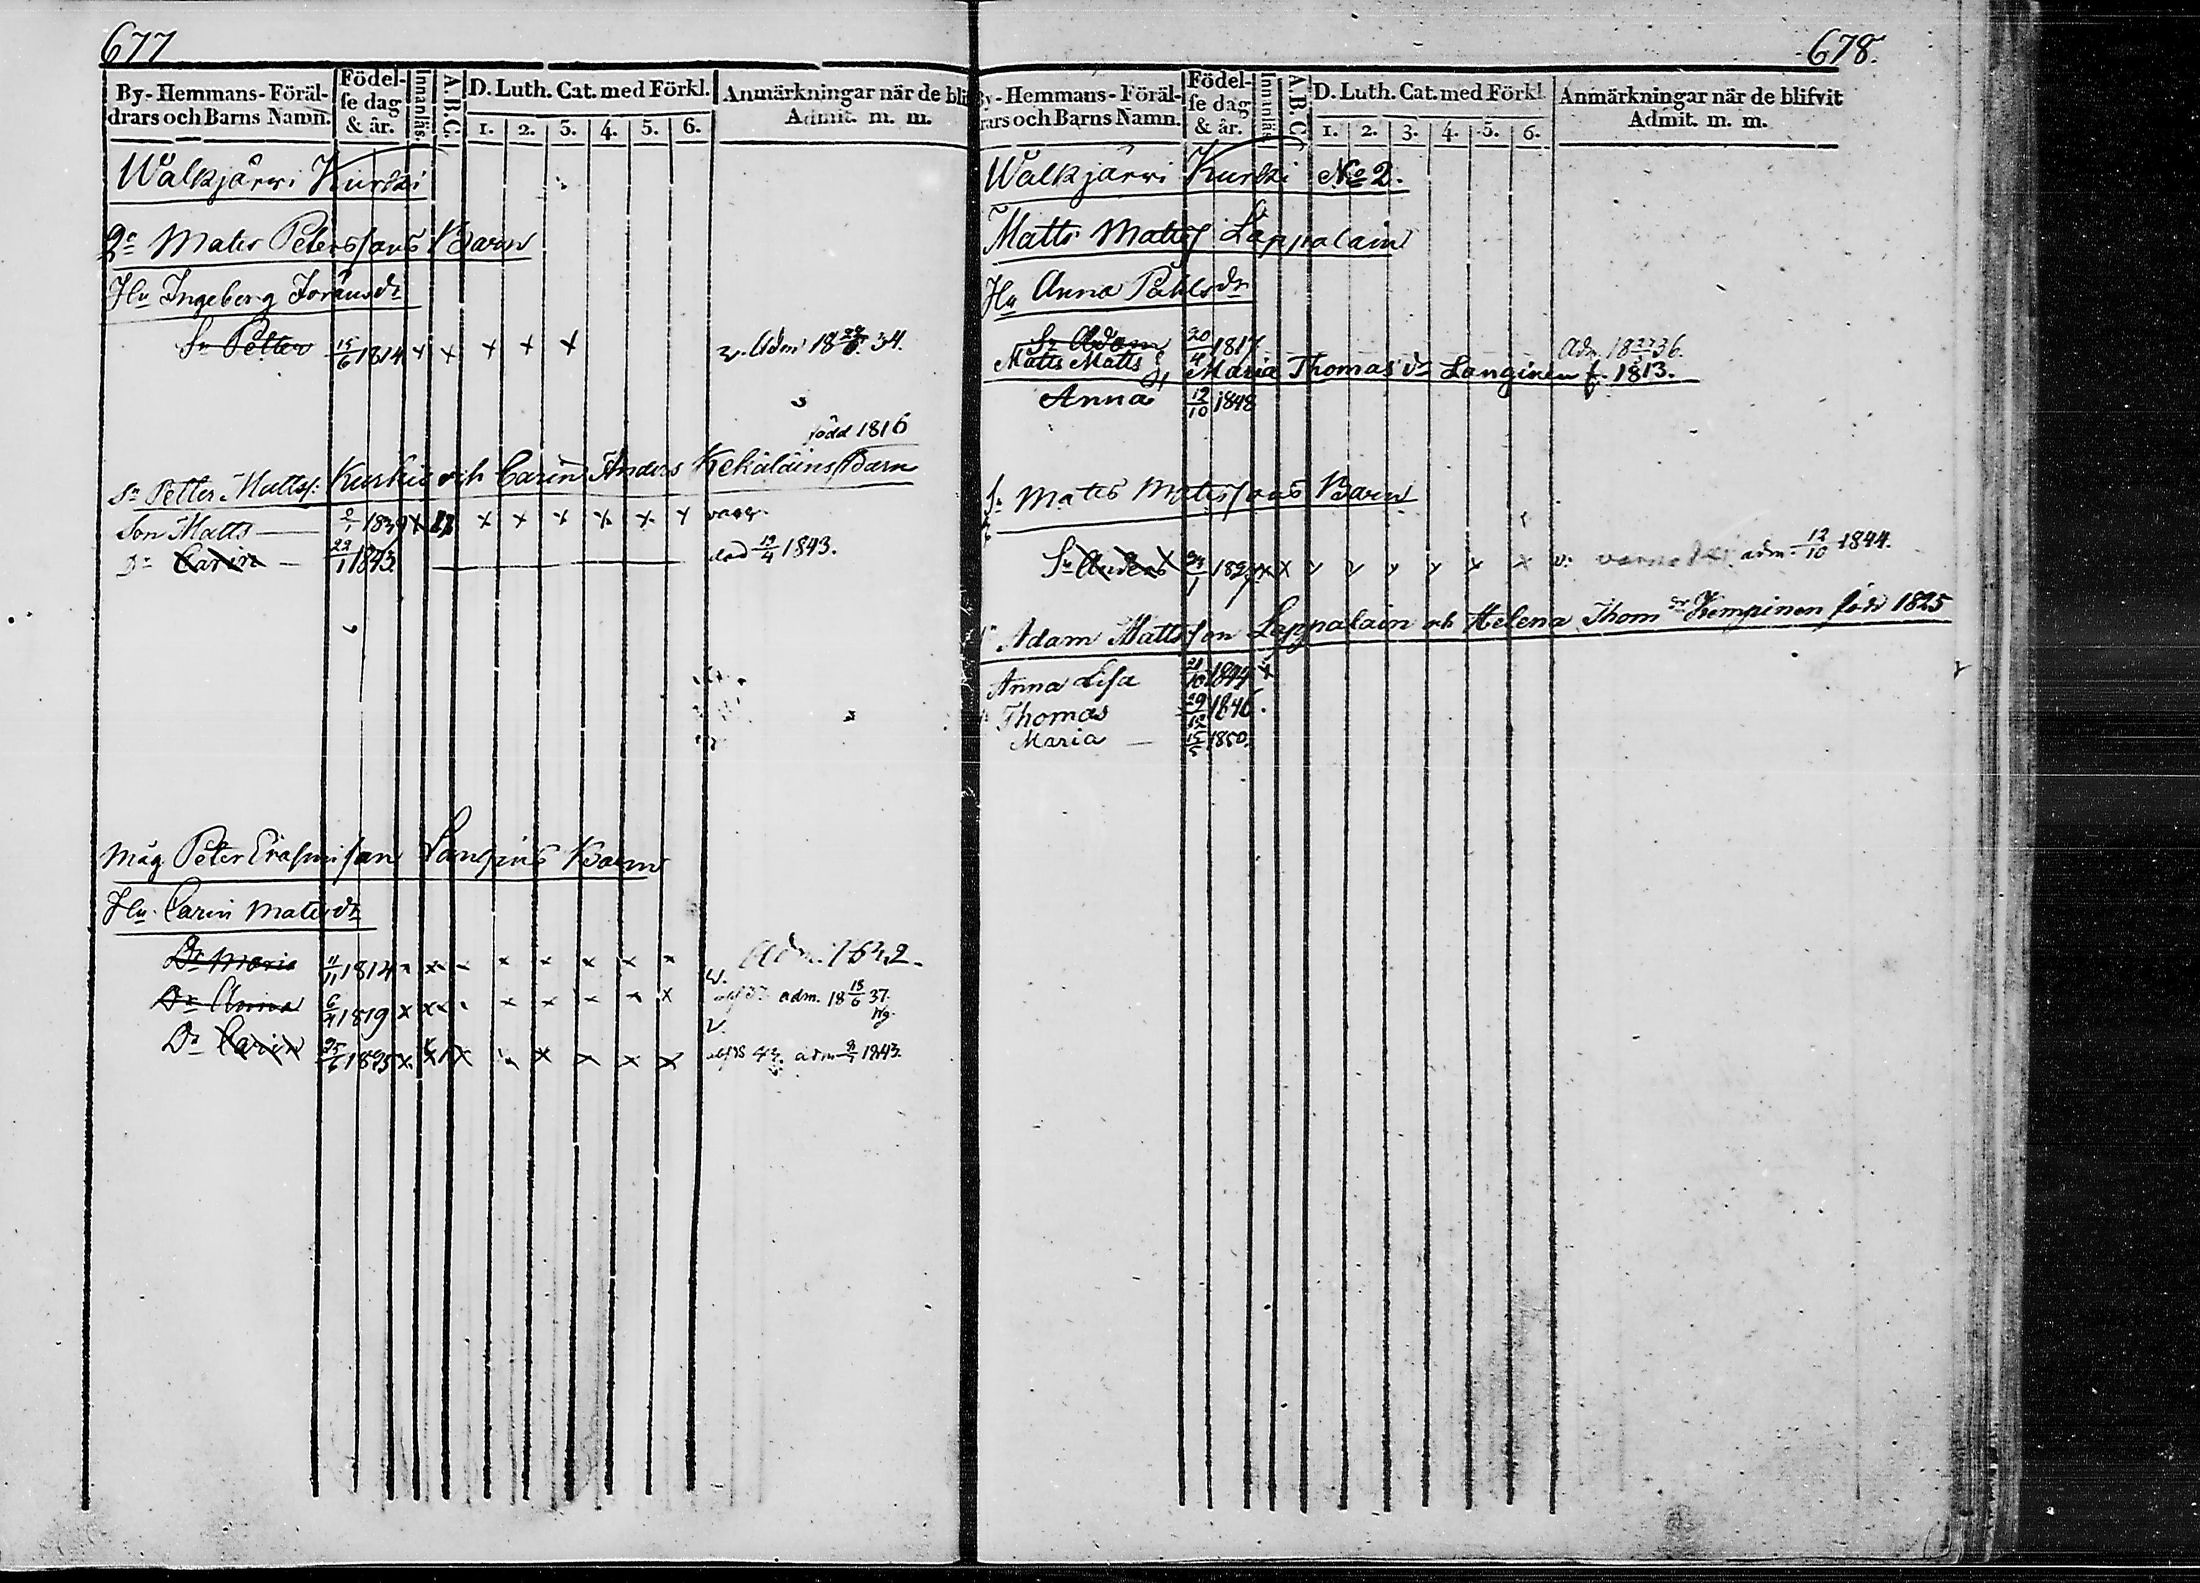 677
By-Hemmans-Föräl-
drars och Barns Namn.
Födel-
se dag
& år.
Innanläs.
A.B.C.
D. Luth. Cat. med Förkl.
1. 2. 3. 4. 5. 6.
Anmärkningar när de bli
Admit. m. m.
Walkjärwi Kurski
Mats Peterssons Barn
Hu Ingeborg Göransdr
Sn Petter 15/6 1814 x x x x x Adm 18 34.
född 1816
Sn Petter Mattss: Kurki och Carin Anders Kekäläins Barn
Son Matts — 1839 x x x x x x x vacc.
Dr Carin — 22/1 1843 död 19/4 1843.
Måg Peter Erasmisson Langins Barn
Hu Carin Matsdr
Dr Maria 4/11 1814 Adm.
Dr Anna 6/4 1819 x x adm. 18 18/6 37.
Dr Carin 25/6 1825 x x x x x x x adm 1843.
678.
By-Hemmans-Föräl-
rars och Barns Namn.
Födel-
se dag
& år.
Innanläs.
A.B.C.
D. Luth. Cat. med Förkl.
1. 2. 3. 4. 5. 6.
Anmärkningar när de blifvit
Admit. m. m.
Walkjärwi Kurski No 2.
Matts Matss Lappalain
Hu Anna Påhlsdr
Sr Adam 20/4 1817 Adm. 18 36.
Matts Matts Maria Thomas dr Langinen f. 1813.
Anna 12/10 1848
Sr Mats Matssons Barn
Sn Anders 24/1 182 x x adm. 12/10 1844.
Adam Mattsson Lappalain och Helena Thom dr Kempinen född 1825
Anna Lisa 21/10 1844 x
Thomas 29/12 1846.
Maria — 15/5 1850.